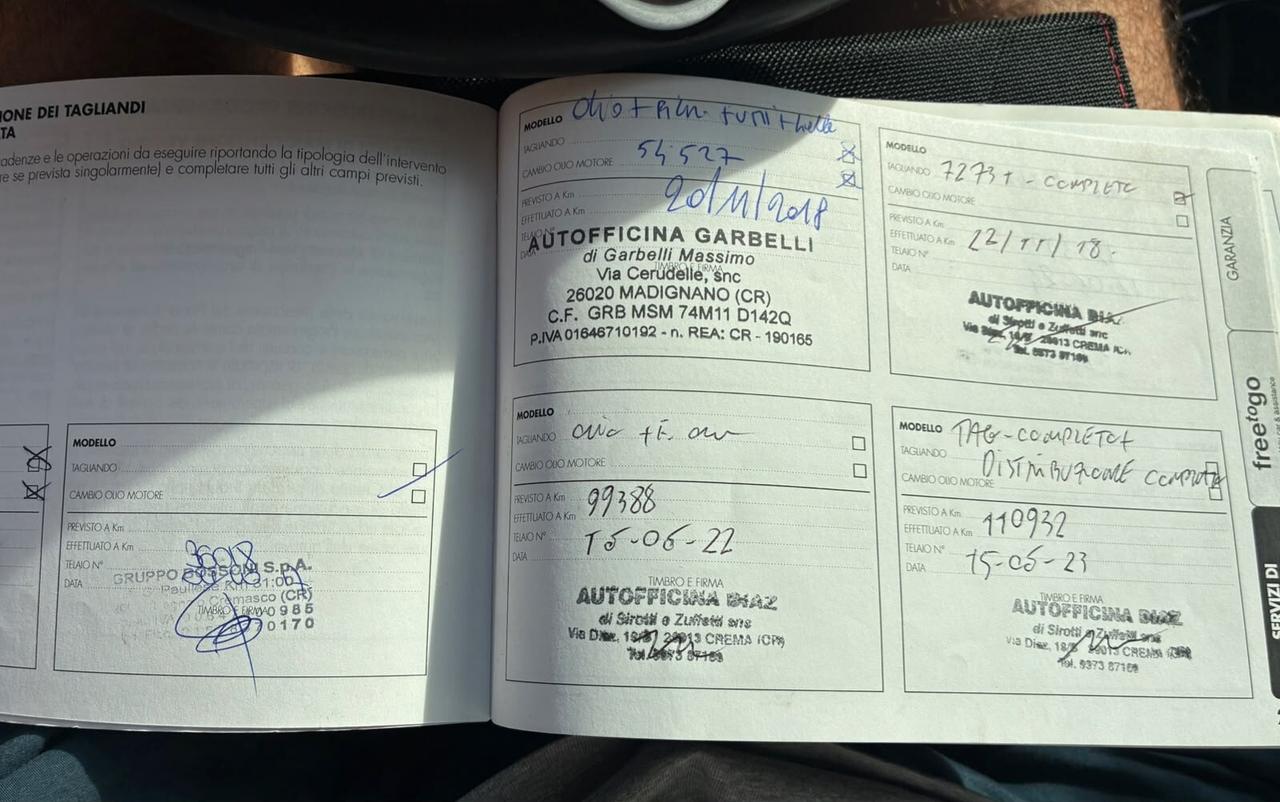 IONE DEI TAGLIANDI
TA
adenze e le operazioni da eseguire riportando la tipologia dell'intervento
re se prevista singolarmente) e completare tutti gli altri campi previsti.
MODELLO
TAGLIANDO
CAMBIO OLIO MOTORE
PREVISTO A Km
EFFETTUATO A Km
TELAIO N°
DATA
36018
GRUPPO BOSSONI S.p.A.
TIMBRO E FIRMA
MODELLO Olio + Filtri
TAGLIANDO
CAMBIO OLIO MOTORE 54527
PREVISTO A Km
EFFETTUATO A Km 20/11/2018
TELAIO N°
DATA
TIMBRO E FIRMA
AUTOFFICINA GARBELLI
di Garbelli Massimo
Via Cerudelle, snc
26020 MADIGNANO (CR)
C.F. GRB MSM 74M11 D142Q
P.IVA 01646710192 - n. REA: CR - 190165
MODELLO
TAGLIANDO - COMPLETO
CAMBIO OLIO MOTORE
PREVISTO A Km
EFFETTUATO A Km 22/11/18
TELAIO N°
DATA
AUTOFFICINA DIAZ
di Sirotti e Zuffetti snc
Via Diaz, 18/B 26013 CREMA (CR)
Tel. 0373 87169
MODELLO
TAGLIANDO olio + F.
CAMBIO OLIO MOTORE
PREVISTO A Km
EFFETTUATO A Km 99388
TELAIO N° 15-06-22
DATA
TIMBRO E FIRMA
AUTOFFICINA DIAZ
di Sirotti e Zuffetti snc
Via Diaz, 18/B 26013 CREMA (CR)
Tel. 0373 87169
MODELLO TAG-COMPLETO +
TAGLIANDO DISTRIBUZIONE COMPLETA
CAMBIO OLIO MOTORE
PREVISTO A Km
EFFETTUATO A Km 110932
TELAIO N° 15-05-23
DATA
TIMBRO E FIRMA
AUTOFFICINA DIAZ
di Sirotti e Zuffetti snc
Via Diaz, 18/B 26013 CREMA (CR)
Tel. 0373 87169
GARANZIA
freetogo
SERVIZI DI